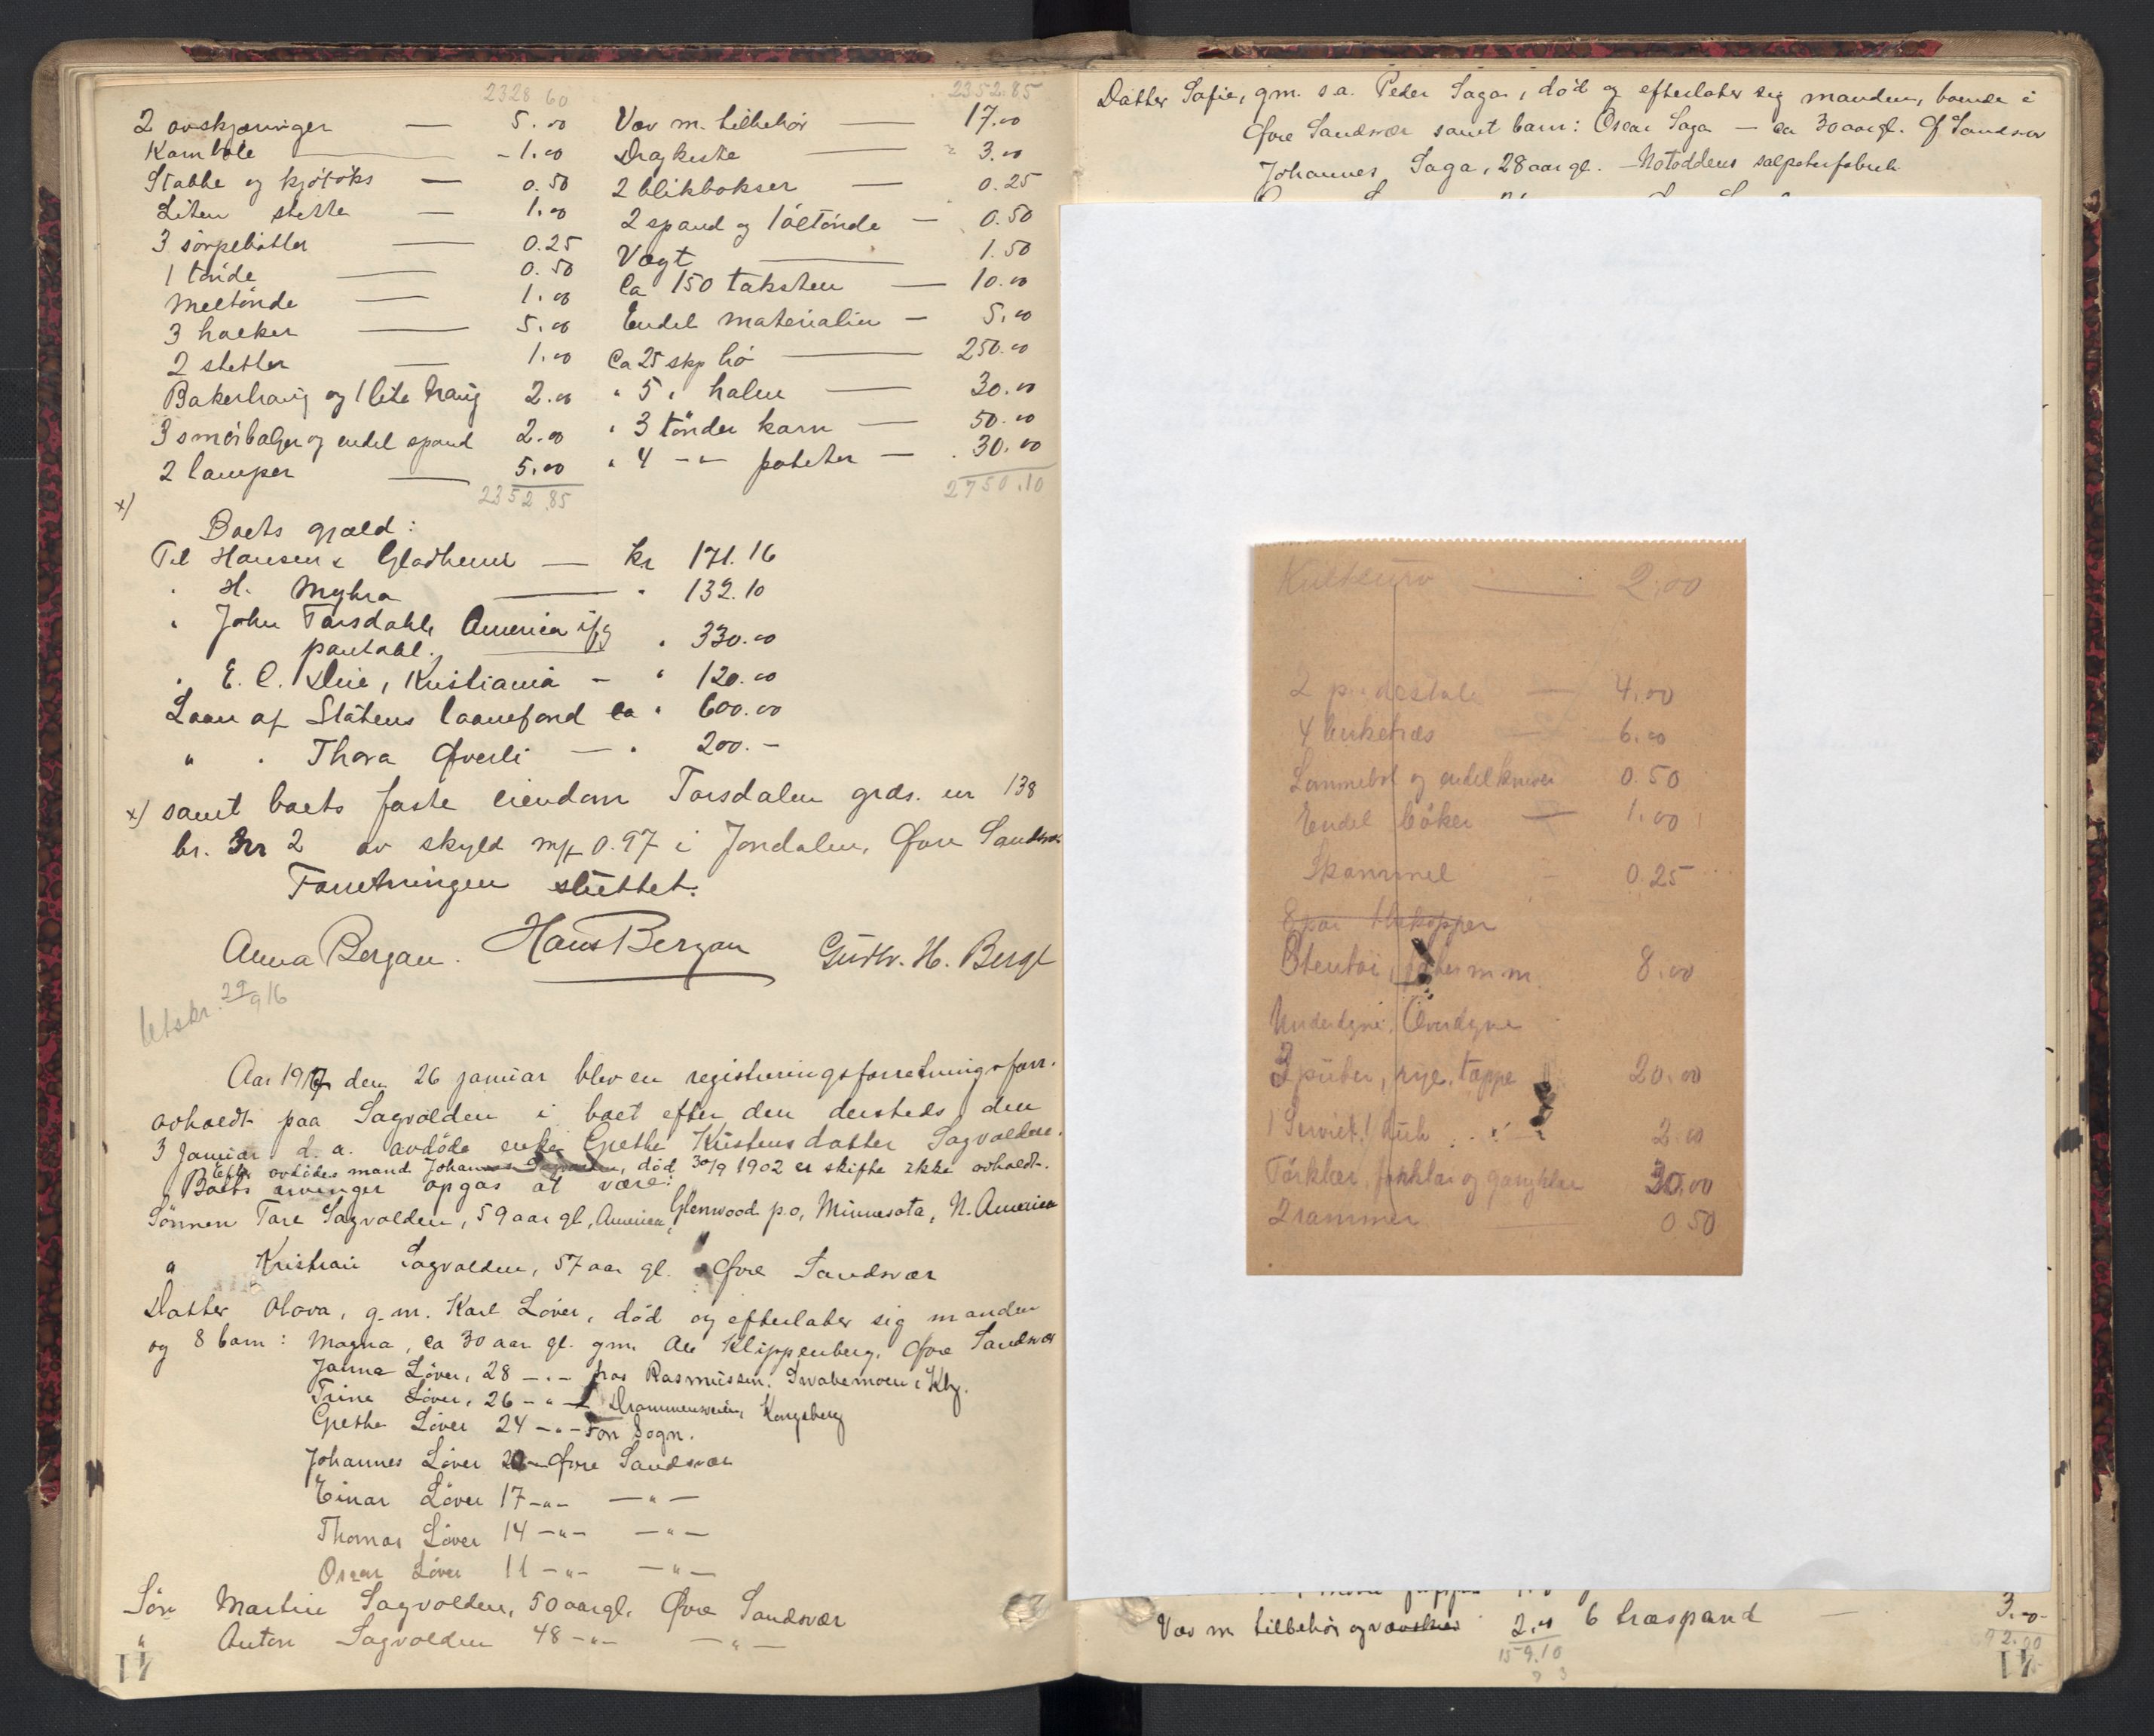 2328 60
2 avskjæringer — 5.00
Karmbole — 1.00
Stabbe og kjøtöks — 0.50
Liten stette — 1.00
3 sörpebötter — 0.25
1 tönde — 0.50
Meltönde — 1.00
3 hacker — 5.00
2 stetter — 1.00
Bakertraug og 1 lite traug 2.00
3 smörbalger og endel spand 2.00
2 lamper — 5.00
2352.85
2352.85
Væv m. tilbehör — 17.00
Dragkiste — 3.00
2 blikbokser — 0.25
2 spand og 1 öltönde — 0.50
Vægt — 1.50
Ca 150 taksten — 10.00
Endel materialier — 5.00
Ca 25 skp hö — 250.00
" 5 " halm — 30.00
" 3 tönder korn — 50.00
" 4 -"- poteter — 30.00
2750.10
x)
Boets gjæld:
Til Hansen & Gladheim — kr 171.16
" H. Myhra — " 132.10
" John Torsdahl, America ifg
pantobl. " 330.00
" E. C. Due, Kristiania — " 120.00
Laan af Statens laanefond ca " 600.00
" " Thora Øverli — " 200.-
x) samt boets faste eiendom Torsdalen grds. nr 138
br. nr 2 av skyld mk 0.97 i Jondalen, Øvre Sandsvær
Forretningen sluttet.
Anna Bergan. Hans Bergan Gustv. H. Berge
Utskr. 29/9 16
Aar 1917 den 26 januar blev en registreringsforretning forr.
avholdt paa Sagvolden i boet efter den dersteds den
3 Januar d.a. avdöde enke Grethe Kristensdatter Sagvolden.
Efter avdödes mand Johannes Sagvolden, död 30/9 1902 er skifte ikke avholdt.
Boets arvinger opgas at være:
Sönnen Tore Sagvolden, 59 aar gl, America, Glenwood p.o, Minnesota, N. America
" Kristian Sagvolden, 57 aar gl. Øvre Sandsvær
Datter Olava, g.m. Karl Löver, död og efterlater sig manden
og 8 barn: Magna, ca 30 aar gl. gm. Ale Klippenberg, Øvre Sandsvær
Janna Löver, 28 -"- hos Rasmussen, Svabemoen i Kbg.
Trine Löver, 26 -"- Drammensveien, Kongsberg
Grethe Löver 24 -"- Fon Sogn.
Johannes Löver 20 - Øvre Sandsvær
Einar Löver 17 -"- -"-
Thomas Löver 14 -"- -"-
Oscar Löver 11 -"- -"-
Sön Martin Sagvolden, 50 aar gl, Øvre Sandsvær
" Anton Sagvolden 48 -"- -"-
41
Datter Safie, gm. s.a. Peder Saga, död og efterlater sig manden, boende i
Øvre Sandsvær samt barn: Oscar Saga — ca 30 aar gl. Ø Sandsvær
Johannes Saga, 28 aar gl. - Notoddens salpeterfabrik
2.00
2 pidestal — 4.00
4 birketræs 6.00
Lommebok og endel kniver 0.50
Endel böker — 1.00
Skammel - 0.25
8 par thekopper
Stentöi, m.m. 8.00
Underdyne, Overdyne
3 puter, rye, tæppe 20.00
1 Serviet, 1 duk 2.00
Törklær, forklær og gangklær 30.00
2 rammer — 0.50
Væv m tilbehör og vævskier 2.00
159.10
6 træspand — 3.00
92.00
41